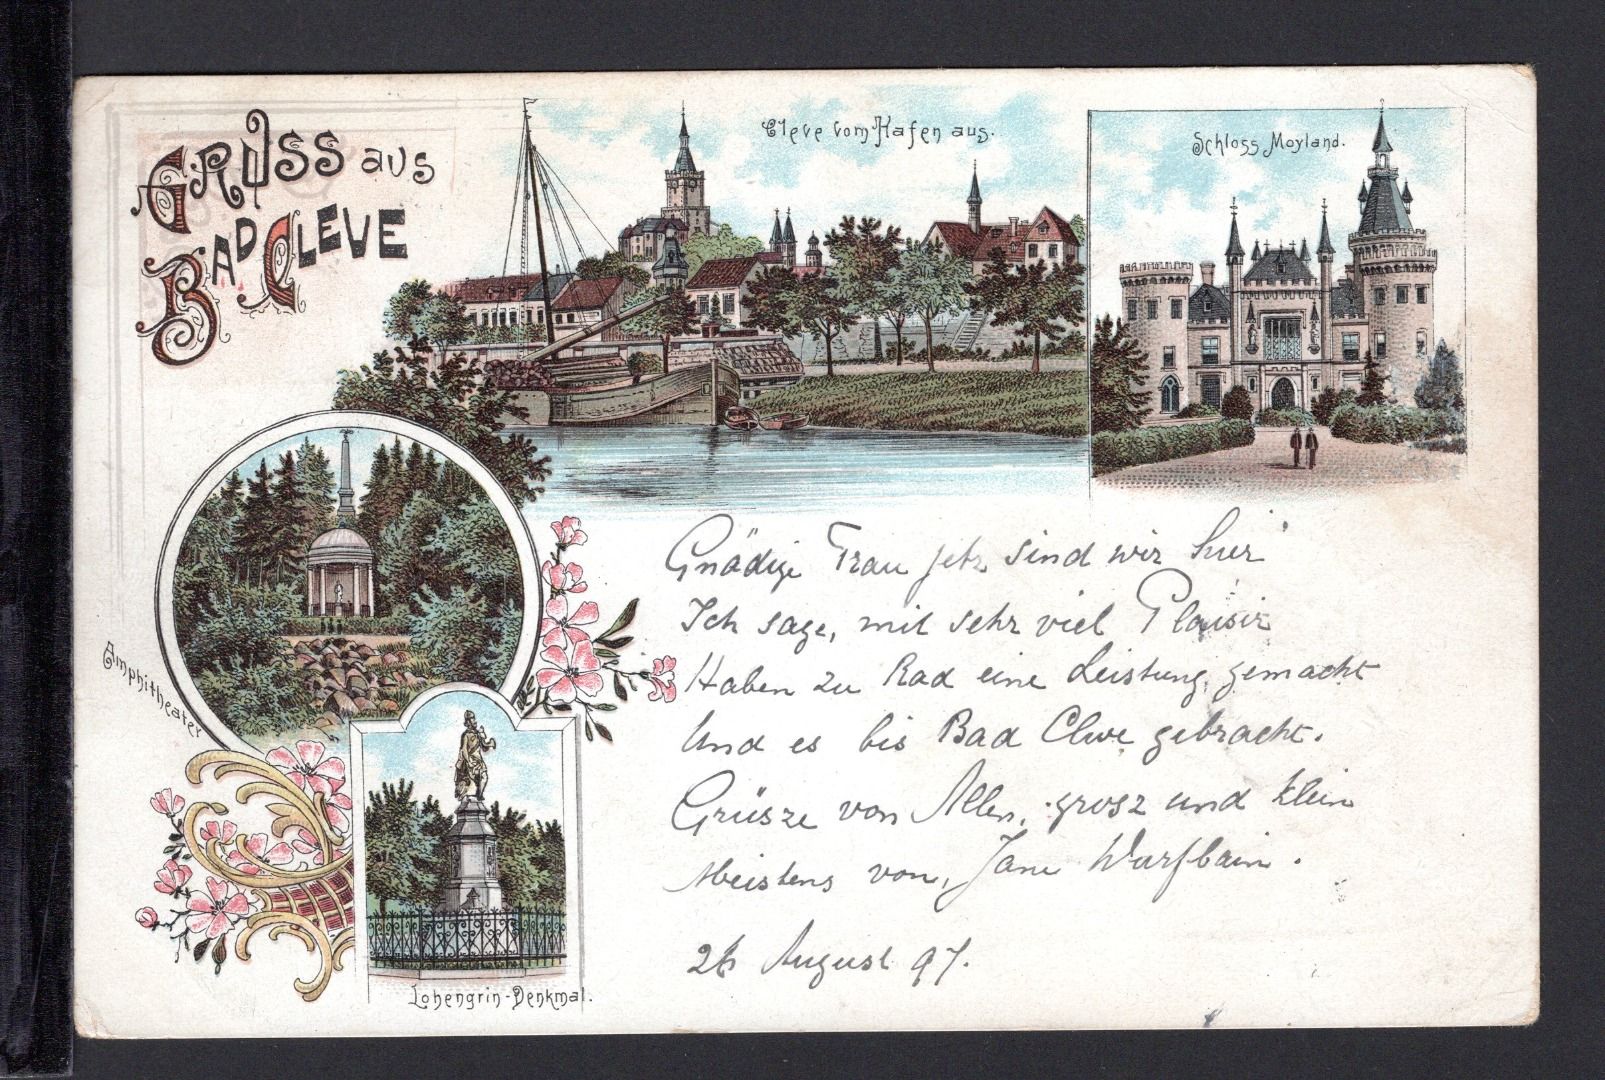 Gruss aus
Bad Cleve
Cleve vom Hafen aus.
Schloss Moyland.
Amphitheater
Lohengrin-Denkmal.
Gnädige Frau jetz sind wir hier
Ich sage, mit sehr viel Plaisir
Haben zu Rad eine Leistung gemacht
Und es bis Bad Cleve gebracht.
Grüsze von Allen, grosz und klein
Meistens von, Jane
26 August 97.